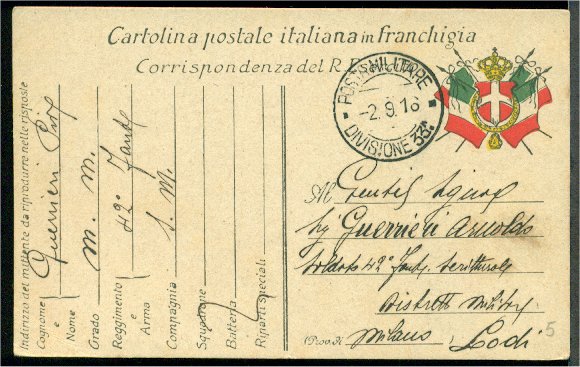 Cartolina postale italiana in franchigia
Corrispondenza del R.
POSTA MILITARE
-2.9.16
DIVISIONE 33ª
Indirizzo del mittente da riprodurre nelle risposte
Cognome e Nome Guerrieri
Grado M. M.
Reggimento e Arma 42° Fant.
Compagnia S. M.
Squadrone
Batteria
Riparti speciali
Al Gentil Signor
Sig Guerrieri Arnoldo
Soldato 42° Fant. scritturale
Distretto Militare
Milano
(Prov. di Lodi
5